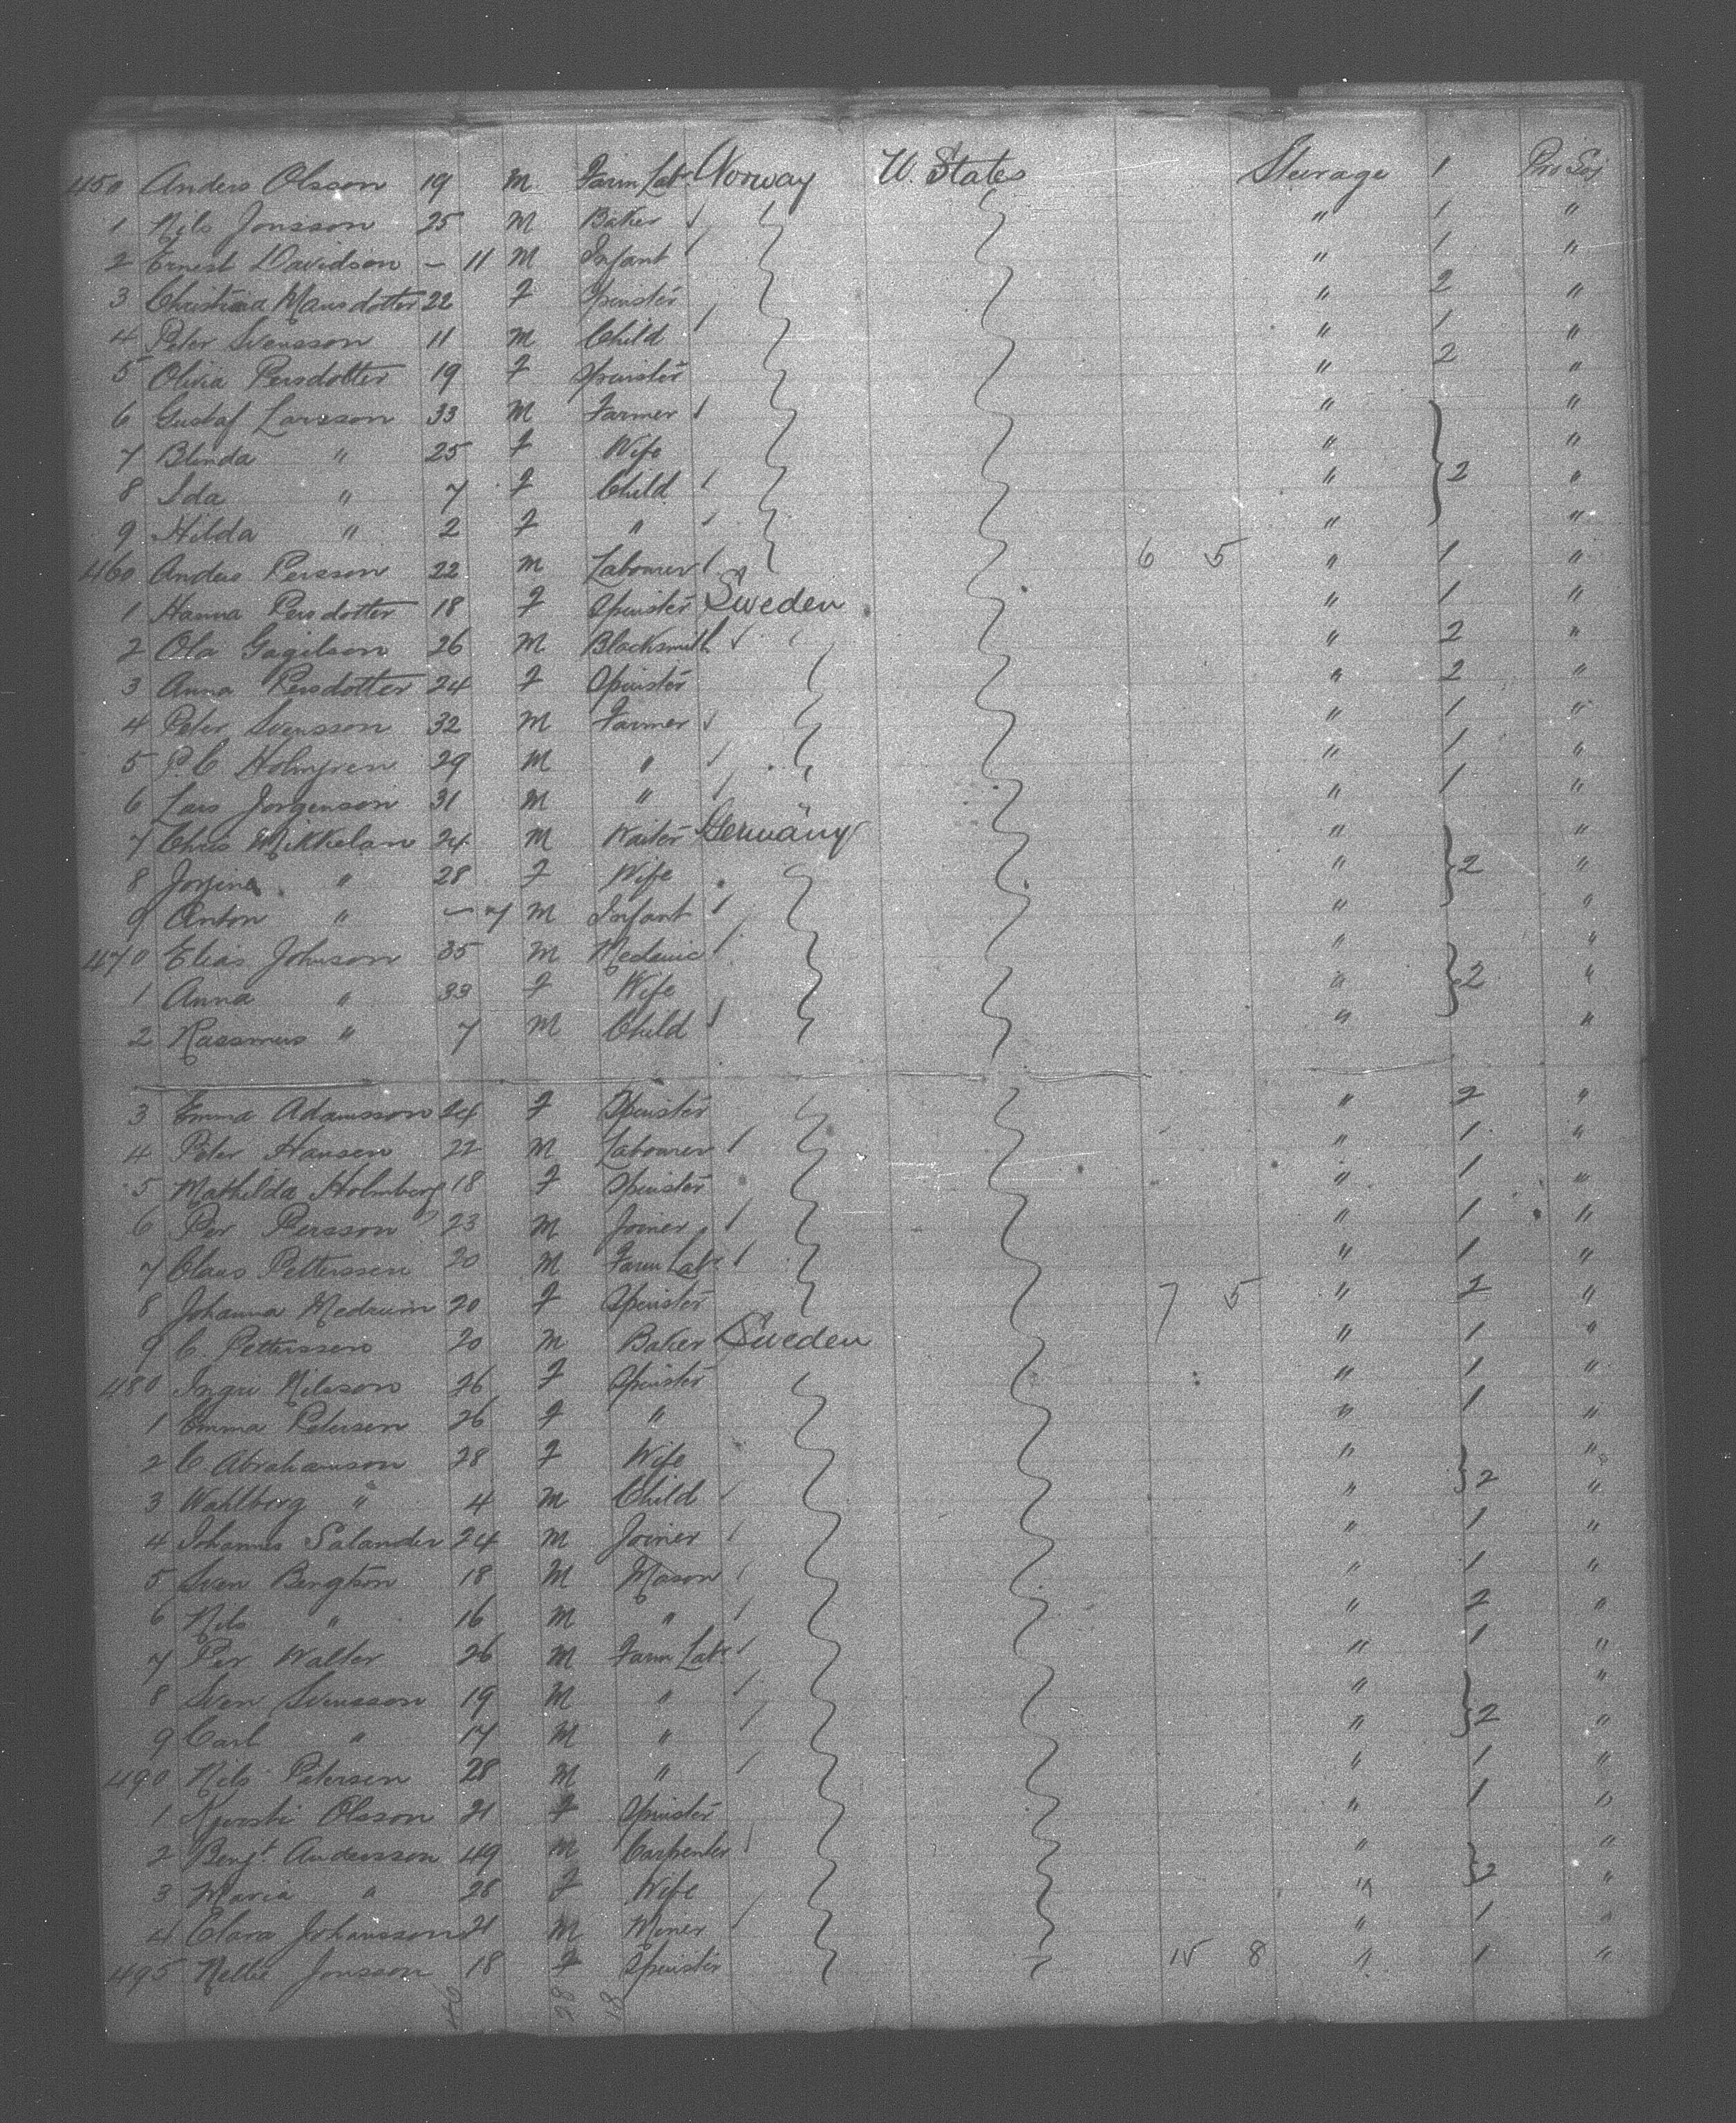 450 Anders Olsson 19 M Farm Lab. Norway U. States Steerage 1 Pro Soj
1 Nils Jonsson 25 M Baker " 1 "
2 Ernest Davidson - 11 M Infant " 1 "
3 Christina Mansdotter 22 F Spinster " 2 "
4 Peter Svensson 11 M Child " 1 "
5 Olivia Persdotter 19 F Spinster " 2 "
6 Gustaf Larsson 33 M Farmer " "
7 Blenda " 25 F Wife " "
8 Ida " 7 F Child " 2 "
9 Hilda " 2 F " " "
460 Anders Persson 22 M Labourer 6 5 " 1 "
1 Hanna Persdotter 18 F Spinster Sweden " 1 "
2 Ola Gagilson 26 M Blacksmith " 2 "
3 Anna Persdotter 24 F Spinster " 2 "
4 Peter Svensson 32 M Farmer " 1 "
5 P. C Holmgren 29 M " " 1 "
6 Lars Jorgenson 31 M " " 1 "
7 Chris Mikkelan 24 M Waiter Germany " "
8 " 28 F Wife " 2 "
9 Anton " - 7 M Infant " "
470 Elias Johnson 35 M Mechanic " "
1 Anna " 33 F Wife " 2 "
2 Rassmus " 7 M Child " "
3 Emma Adamsson 24 F Spinster " 2 "
4 Peter Hansen 22 M Labourer " 1 "
5 Mathilda Holmberg 18 F Spinster " 1 "
6 Per Persson 23 M Joiner " 1 "
7 Claus Petterssen 20 M Farm Lab. " 1 "
8 Johanna 20 F Spinster 7 5 " 2 "
9 C. Petterssen 20 M Baker Sweden " 1 "
480 Ingri Nilsson 26 F Spinster " 1 "
1 Emma Petersen 26 F " " 1 "
2 C. Abrahamson 28 F Wife " "
3 Wahlborg " 4 M Child " 2 "
4 Johannes Salander 24 M Joiner " 1 "
5 Sven Bengtson 18 M Mason " 1 "
6 Nils " 16 M " " 2 "
7 Per Walter 26 M Farm Lab. " 1 "
8 Sven Svensson 19 M " " "
9 Carl " 17 M " " 2 "
490 Nils Petersen 28 M " " 1 "
1 Kjersti Olsson 21 F Spinster " 1 "
2 Bengt Andersson 49 M Carpenter " "
3 Maria " 28 F Wife " 2 "
4 Clara Johansson 21 M Miner " 1 "
495 Nellie Jonsson 18 F Spinster 15 8 " 1 "
28 18